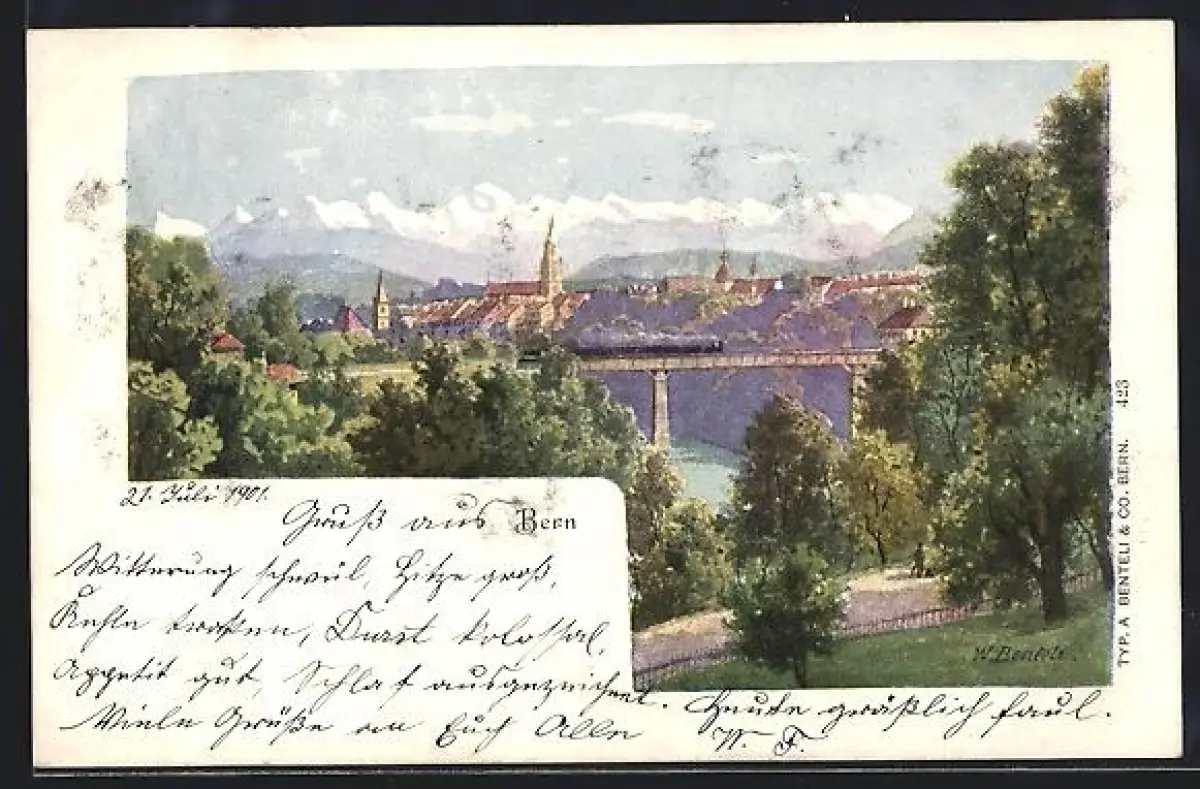 21. Juli 1901.
Gruß aus Bern
Witterung schwül, Hitze groß,
Kehle trocken, Durst kolossal,
Appetit gut, Schlaf ausgezeichnet. Heute gräßlich faul.
Viele Grüße an Euch Alle
W. F.
W. Benteli.
TYP. A BENTELI & CO. BERN. 423